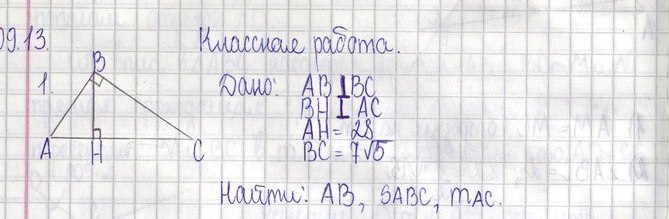 09.13.
Классная работа.
1.
B
A
H
C
Дано: AB ⊥ BC
BH ⊥ AC
AH = 28
BC = 7√5
Найти: AB, SABC, mAC.